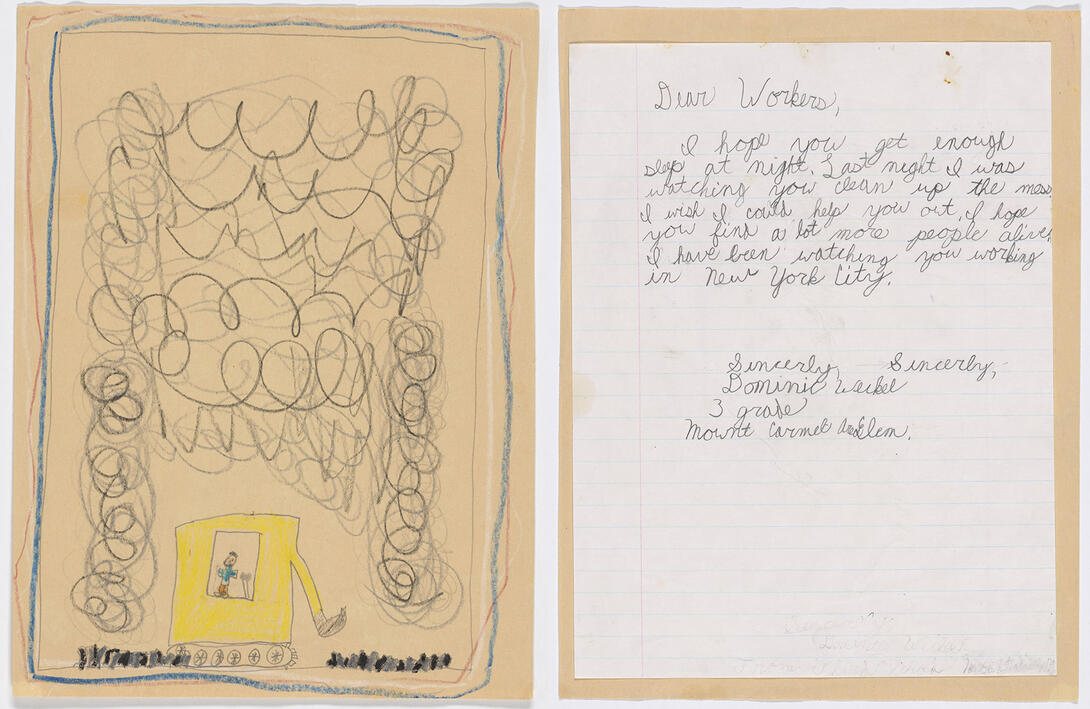 Dear Workers,
I hope you get enough
slep at night. Last night I was
watching you clean up the mess
I wish I could help you out. I hope
you find a lot more people alive.
I have been watching you working
in New York City.
Sincerly, Sincerly,
Dominic
3 grade
Mount Carmel Area Elem.